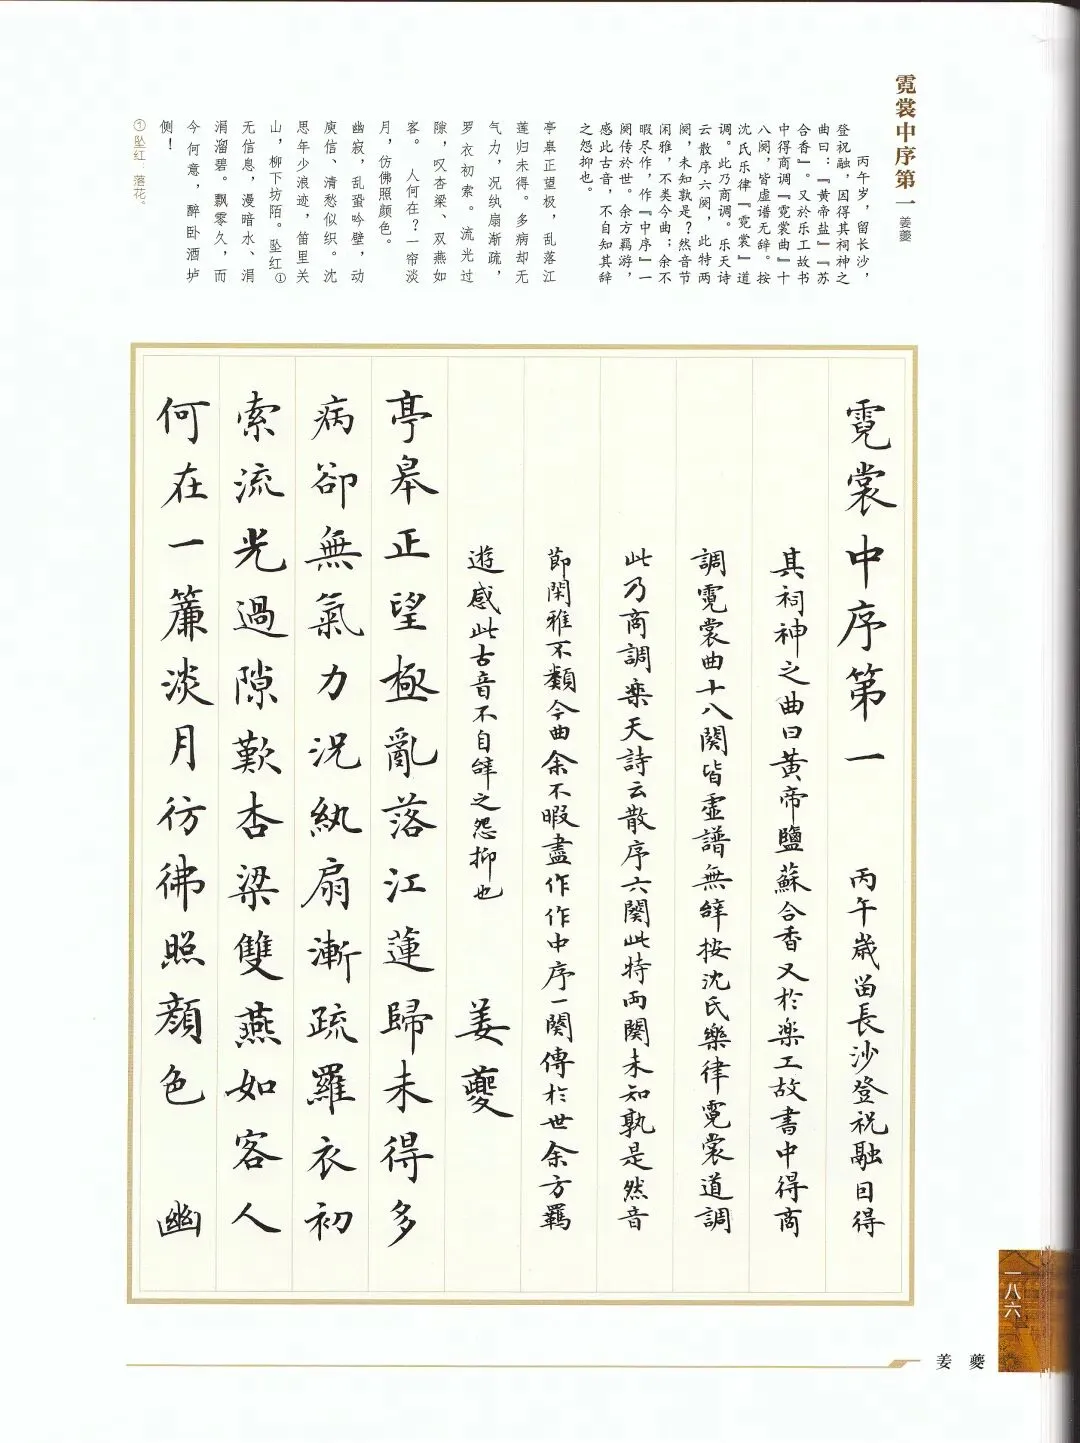 霓裳中序第一
姜夔
丙午岁，留长沙，
登祝融，因得其祠神之
曲曰：『黄帝盐』『苏
合香』。又於乐工故书
中得商调『霓裳曲』十
八阕，皆虚谱无辞。按
沈氏乐律『霓裳』道
调。此乃商调。乐天诗
云散序六阕，此特两
阕，未知孰是？然音节
闲雅，不类今曲；余不
暇尽作，作『中序』一
阕传於世。余方羁游，
感此古音，不自知其辞
之怨抑也。
亭皋正望极，乱落江
莲归未得。多病却无
气力，况纨扇渐疏，
罗衣初索。流光过
隙，叹杏梁、双燕如
客。人何在？一帘淡
月，仿佛照颜色。
幽寂，乱蛩吟壁，动
庾信、清愁似织。沈
思年少浪迹，笛里关
山，柳下坊陌。坠红①
无信息，漫暗水、涓
涓溜碧。飘零久，而
今何意，醉卧酒垆
侧！
①坠红：落花。
霓裳中序第一 丙午歲留長沙登祝融因得
其祠神之曲曰黃帝鹽蘇合香又於楽工故書中得商
調霓裳曲十八闋皆虛譜無辝按沈氏樂律霓裳道調
此乃商調楽天詩云散序六闋此特両闋未知孰是然音
節閑雅不類今曲余不暇盡作作中序一闋傳於世余方羈
遊感此古音不自辝之怨抑也 姜夔
亭皋正望極亂落江蓮歸未得多
病卻無氣力況紈扇漸疏羅衣初
索流光過隙歎杏梁雙燕如客人
何在一簾淡月彷彿照顏色 幽
一八六
姜夔